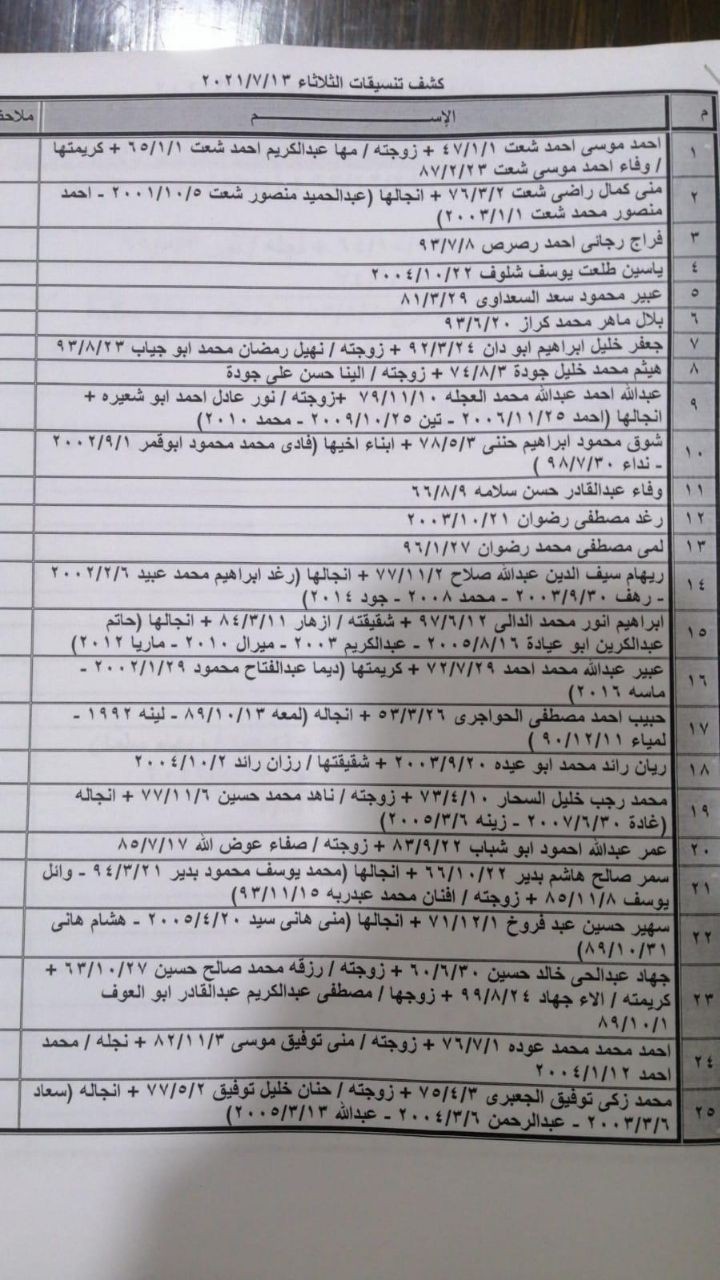 كشف تنسيقات الثلاثاء ٢٠٢١/٧/١٣
م الإســـــم ملاحظ
١ احمد موسى احمد شعت ٤٧/١/١ + زوجته / مها عبدالكريم احمد شعت ٦٥/١/١ + كريمتها
/ وفاء احمد موسى شعت ٨٧/٢/٢٣
٢ منى كمال راضى شعت ٧٦/٣/٢ + انجالها (عبدالحميد منصور شعت ٢٠٠١/١٠/٥ - احمد
منصور محمد شعت ٢٠٠٣/١/١)
٣ فراج رجائى احمد رصرص ٩٣/٧/٨
٤ ياسين طلعت يوسف شلوف ٢٠٠٤/١٠/٢٢
٥ عبير محمود سعد السعداوى ٨١/٣/٢٩
٦ بلال ماهر محمد كراز ٩٣/٦/٢٠
٧ جعفر خليل ابراهيم ابو دان ٩٢/٣/٢٤ + زوجته / نهيل رمضان محمد ابو جياب ٩٣/٨/٢٣
٨ هيثم محمد خليل جودة ٧٤/٨/٣ + زوجته / الينا حسن على جودة
٩ عبدالله احمد عبدالله محمد العجله ٧٩/١١/١٠ +زوجته / نور عادل احمد ابو شعيره +
انجالها (احمد ٢٠٠٦/١١/٢٥ - تين ٢٠٠٩/١٠/٢٥ - محمد ٢٠١٠)
١٠ شوق محمود ابراهيم حننى ٧٨/٥/٣ + ابناء اخيها (فادى محمد محمود ابوقمر ٢٠٠٢/٩/١
- نداء ٩٨/٧/٣٠ )
١١ وفاء عبدالقادر حسن سلامه ٦٦/٨/٩
١٢ رغد مصطفى رضوان ٢٠٠٣/١٠/٢١
١٣ لمى مصطفى محمد رضوان ٩٦/١/٢٧
١٤ ريهام سيف الدين عبدالله صلاح ٧٧/١١/٢ + انجالها (رغد ابراهيم محمد عبيد ٢٠٠٢/٢/٦
- رهف ٢٠٠٣/٩/٣٠ - محمد ٢٠٠٨ - جود ٢٠١٤)
١٥ ابراهيم انور محمد الدالى ٩٧/٦/١٢ + شقيقته / ازهار ٨٤/٣/١١ + انجالها (حاتم
عبدالكرين ابو عيادة ٢٠٠٥/٨/١٦ - عبدالكريم ٢٠٠٣ - ميرال ٢٠١٠ - ماريا ٢٠١٢)
١٦ عبير عبدالله محمد احمد ٧٢/٧/٢٩ + كريمتها (ديما عبدالفتاح محمود ٢٠٠٢/١/٢٩ -
ماسه ٢٠١٦)
١٧ حبيب احمد مصطفى الحواجرى ٥٣/٣/٢٦ + انجاله (لمعه ٨٩/١٠/١٣ - لينه ١٩٩٢ -
لمياء ٩٠/١٢/١١ )
١٨ ريان رائد محمد ابو عيده ٢٠٠٣/٩/٢٠ + شقيقتها / رزان رائد ٢٠٠٤/١٠/٢
١٩ محمد رجب خليل السحار ٧٣/٤/١٠ + زوجته / ناهد محمد حسين ٧٧/١١/٦ + انجاله
(غادة ٢٠٠٧/٦/٣٠ - زينه ٢٠٠٥/٣/٦)
٢٠ عمر عبدالله احمود ابو شباب ٨٣/٩/٢٢ + زوجته / صفاء عوض الله ٨٥/٧/١٧
٢١ سمر صالح هاشم بدير ٦٦/١٠/٢٢ + انجالها (محمد يوسف محمود بدير ٩٤/٣/٢١ - وائل
يوسف ٨٥/١١/٨ + زوجته / افنان محمد عبدربه ٩٣/١١/١٥)
٢٢ سهير حسين عبد فروخ ٧١/١٢/١ + انجالها (منى هانى سيد ٢٠٠٥/٤/٢٠ - هشام هانى
٨٩/١٠/٣١)
٢٣ جهاد عبدالحى خالد حسين ٦٠/٦/٣٠ + زوجته / رزقه محمد صالح حسين ٦٣/١٠/٢٧ +
كريمته / الاء جهاد ٩٩/٨/٢٤ + زوجها / مصطفى عبدالكريم عبدالقادر ابو العوف
٨٩/١٠/١
٢٤ احمد محمد محمد عوده ٧٦/٧/١ + زوجته / منى توفيق موسى ٨٢/١١/٣ + نجله / محمد
احمد ٢٠٠٤/١/١٢
٢٥ محمد زكى توفيق الجعبرى ٧٥/٤/٣ + زوجته / حنان خليل توفيق ٧٧/٥/٢ + انجاله (سعاد
٢٠٠٣/٣/٦ - عبدالرحمن ٢٠٠٤/٣/٦ - عبدالله ٢٠٠٥/٣/١٣)